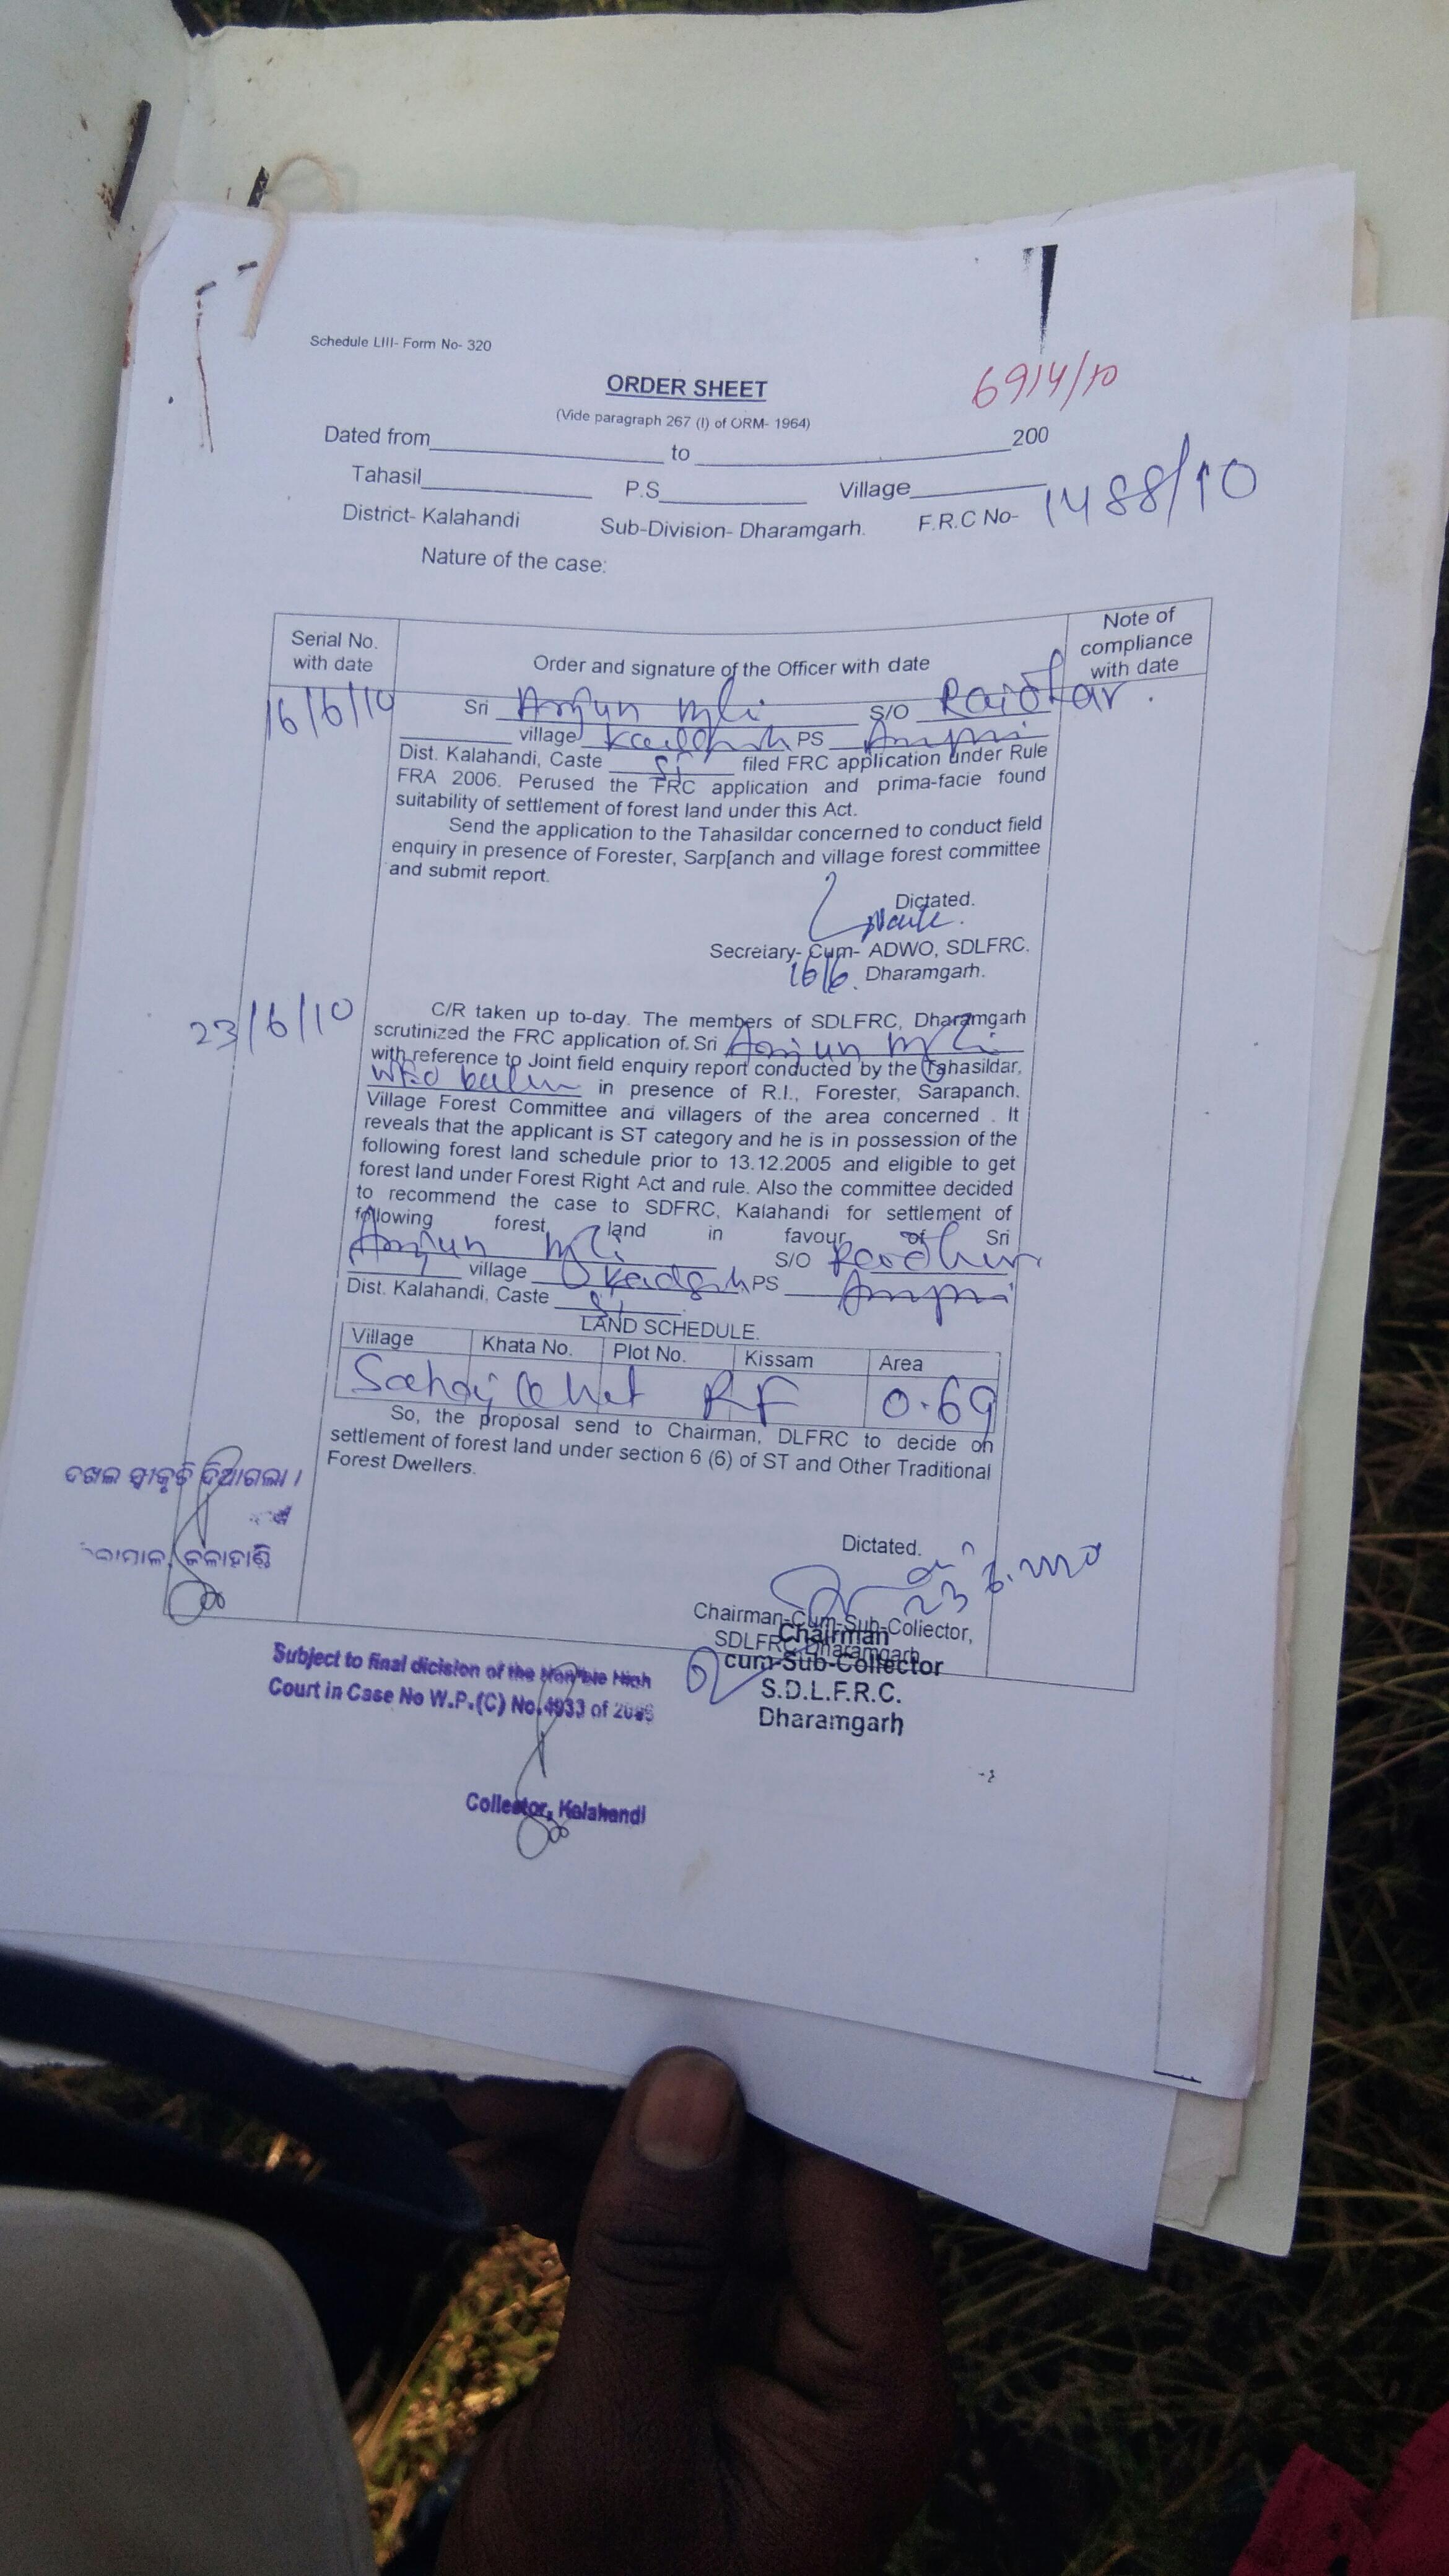 Schedule LIII- Form No- 320
6914/10
ORDER SHEET
(Vide paragraph 267 (I) of ORM- 1964)
Dated from to 200
Tahasil P.S Village
District- Kalahandi Sub-Division- Dharamgarh. F.R.C No- 1488/10
Nature of the case:
Serial No. with date
Order and signature of the Officer with date
Note of compliance with date
16/6/10
Sri Arjun S/O
village PS
Dist. Kalahandi, Caste ST filed FRC application under Rule
FRA 2006. Perused the FRC application and prima-facie found
suitability of settlement of forest land under this Act.
Send the application to the Tahasildar concerned to conduct field
enquiry in presence of Forester, Sarp[anch and village forest committee
and submit report.
Dictated.
Secretary- Cum- ADWO, SDLFRC.
16/6. Dharamgarh.
23/6/10
C/R taken up to-day. The members of SDLFRC, Dharamgarh
scrutinized the FRC application of. Sri Arjun
with reference to Joint field enquiry report conducted by the Tahasildar,
in presence of R.I., Forester, Sarapanch.
Village Forest Committee and villagers of the area concerned . It
reveals that the applicant is ST category and he is in possession of the
following forest land schedule prior to 13.12.2005 and eligible to get
forest land under Forest Right Act and rule. Also the committee decided
to recommend the case to SDFRC, Kalahandi for settlement of
following forest land in favour of Sri
Arjun S/O
village PS
Dist. Kalahandi, Caste ST
LAND SCHEDULE.
Village Khata No. Plot No. Kissam Area
RF 0.69
So, the proposal send to Chairman, DLFRC to decide on
settlement of forest land under section 6 (6) of ST and Other Traditional
Forest Dwellers.
ଦଖଲ ସ୍ୱୀକୃତି ଦିଆଗଲା ।
କଳାହାଣ୍ଡି
Dictated.
Chairman-Cum-Sub-Collector,
SDLFRC, Dharamgarh
Chairman
cum-Sub-Collector
S.D.L.F.R.C.
Dharamgarh
Subject to final dicision of the Hon'ble High
Court in Case No W.P.(C) No.4933 of
Collector, Kalahandi